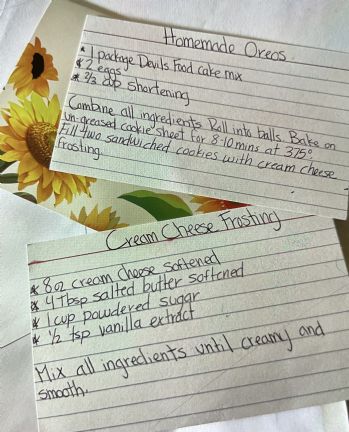 Homemade Oreos
* 1 package Devils Food cake mix
* 2 eggs
* 2/3 cup shortening
Combine all ingredients. Roll into balls. Bake on
un-greased cookie sheet for 8-10 mins at 375°.
Fill two sandwiched cookies with cream cheese
frosting.
Cream Cheese Frosting
* 8oz cream cheese softened
* 4 Tbsp salted butter softened
* 1 cup powdered sugar
* 1/2 tsp vanilla extract
Mix all ingredients until creamy and
smooth.